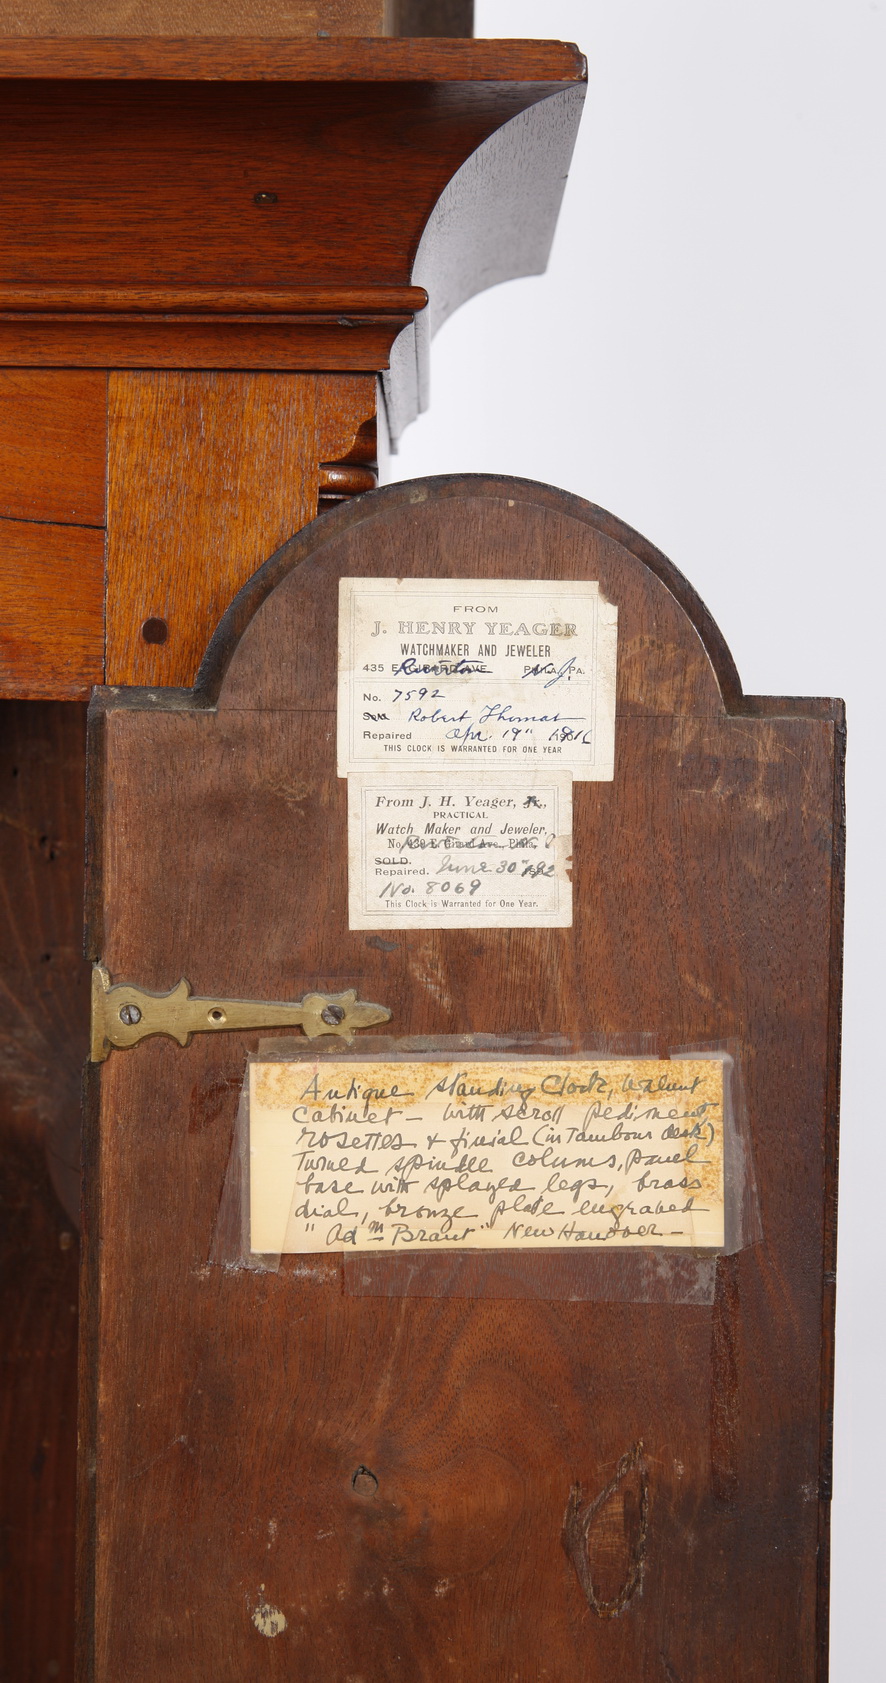 FROM
J. HENRY YEAGER
WATCHMAKER AND JEWELER
435 E. GIRARD AVE. Riverton PHILA., PA. N. J.
No. 7592
Sold Robert Thomas
Repaired Apr. 19"
THIS CLOCK IS WARRANTED FOR ONE YEAR
From J. H. Yeager, Jr.,
PRACTICAL
Watch Maker and Jeweler,
No. 439 E. Girard Ave., Phila.
SOLD.
Repaired. June 30"
No. 8069
This Clock is Warranted for One Year.
Antique standing Clock, walnut
Cabinet - with scroll pediment
rosettes & finial (in Tambour desk)
Turned spindle colums, panel
base with splayed legs, brass
dial, bronze plate engraved
" Adm Brant " New Hanover -